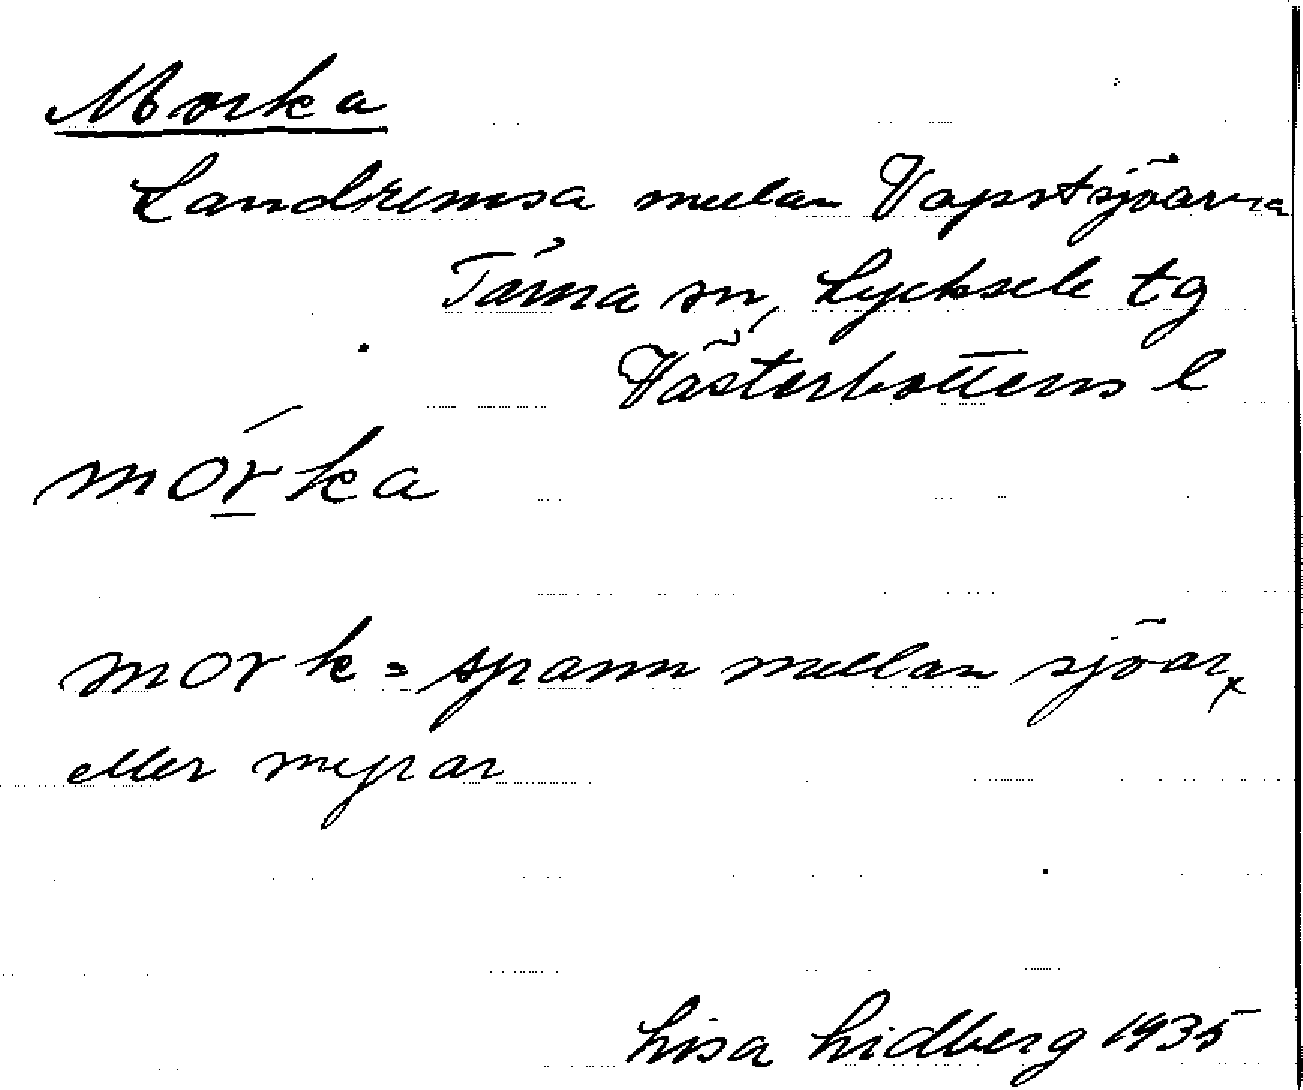 Morka
Landremsa mellan Vapstsjöarna
Tärna sn, Lycksele tg
Västerbottens l
mórka
mork = spann mellan sjöar
eller myrar
Lisa Lidberg 1935